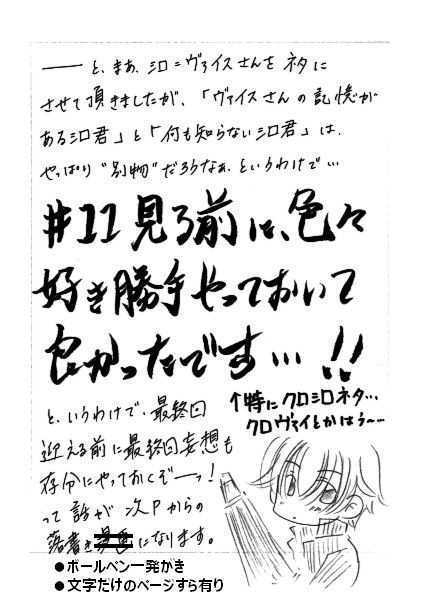 ―― と、まぁ、シロ=ヴァイスさんを ネタに
させて頂きましたが、「ヴァイスさんの記憶が
ある シロ君」と「何も知らないシロ君」は、
やっぱり“別物”だろうなぁ、というわけで…
#11見る前に、色々
好き勝手やっておいて
良かったです…!!
↑特にクロシロネタ…
クロヴァイとかはぅ〜…
と、いうわけで、最終回
迎える前に最終回妄想も
存分にやっておくぞーッ!
って話が 次Pからの
落書き漫画になります。
●ボールペン一発がき
●文字だけのページすら有り